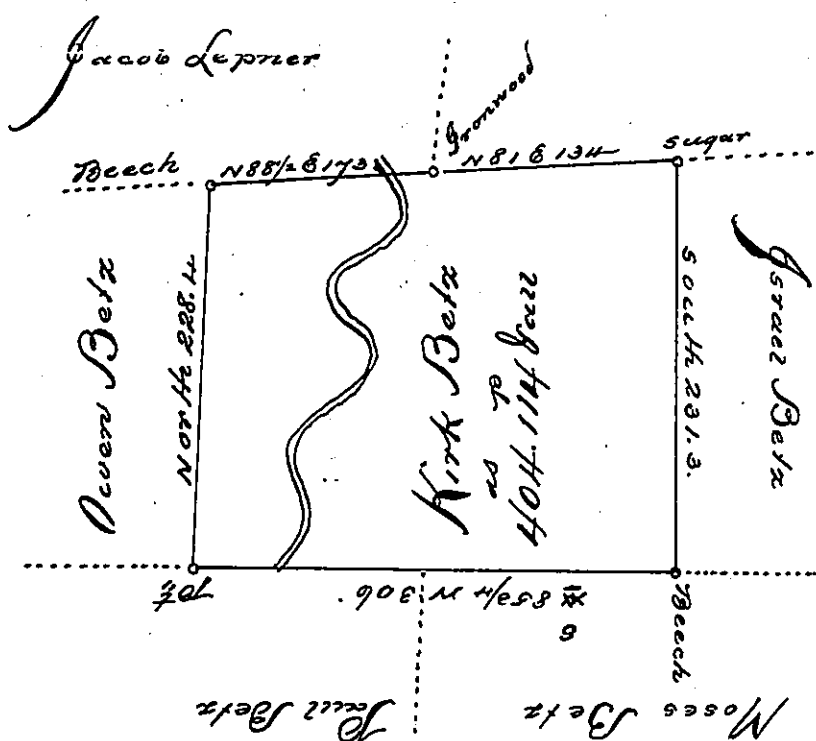 Jacob Lepner
Ironwood
Beech
N 88 1/2 E 173
N 81 E 134
Sugar
Owen Betz
North 228.4
Kirk Betz
404 114
South 231.3.
Israel Betz
Pt.
S 85 3/4 W 306
Beech
Paul Betz
Moses Betz